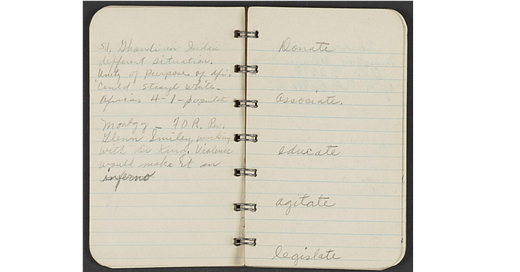 St. Ghandi in India
different situation.
Unity of Purpose of
Could
Africa 4-1-
F.O.R.
Glenn Smiley
with Dr King. Violence
would make it an
inferno
Donate
associate.
educate
agitate
legislate